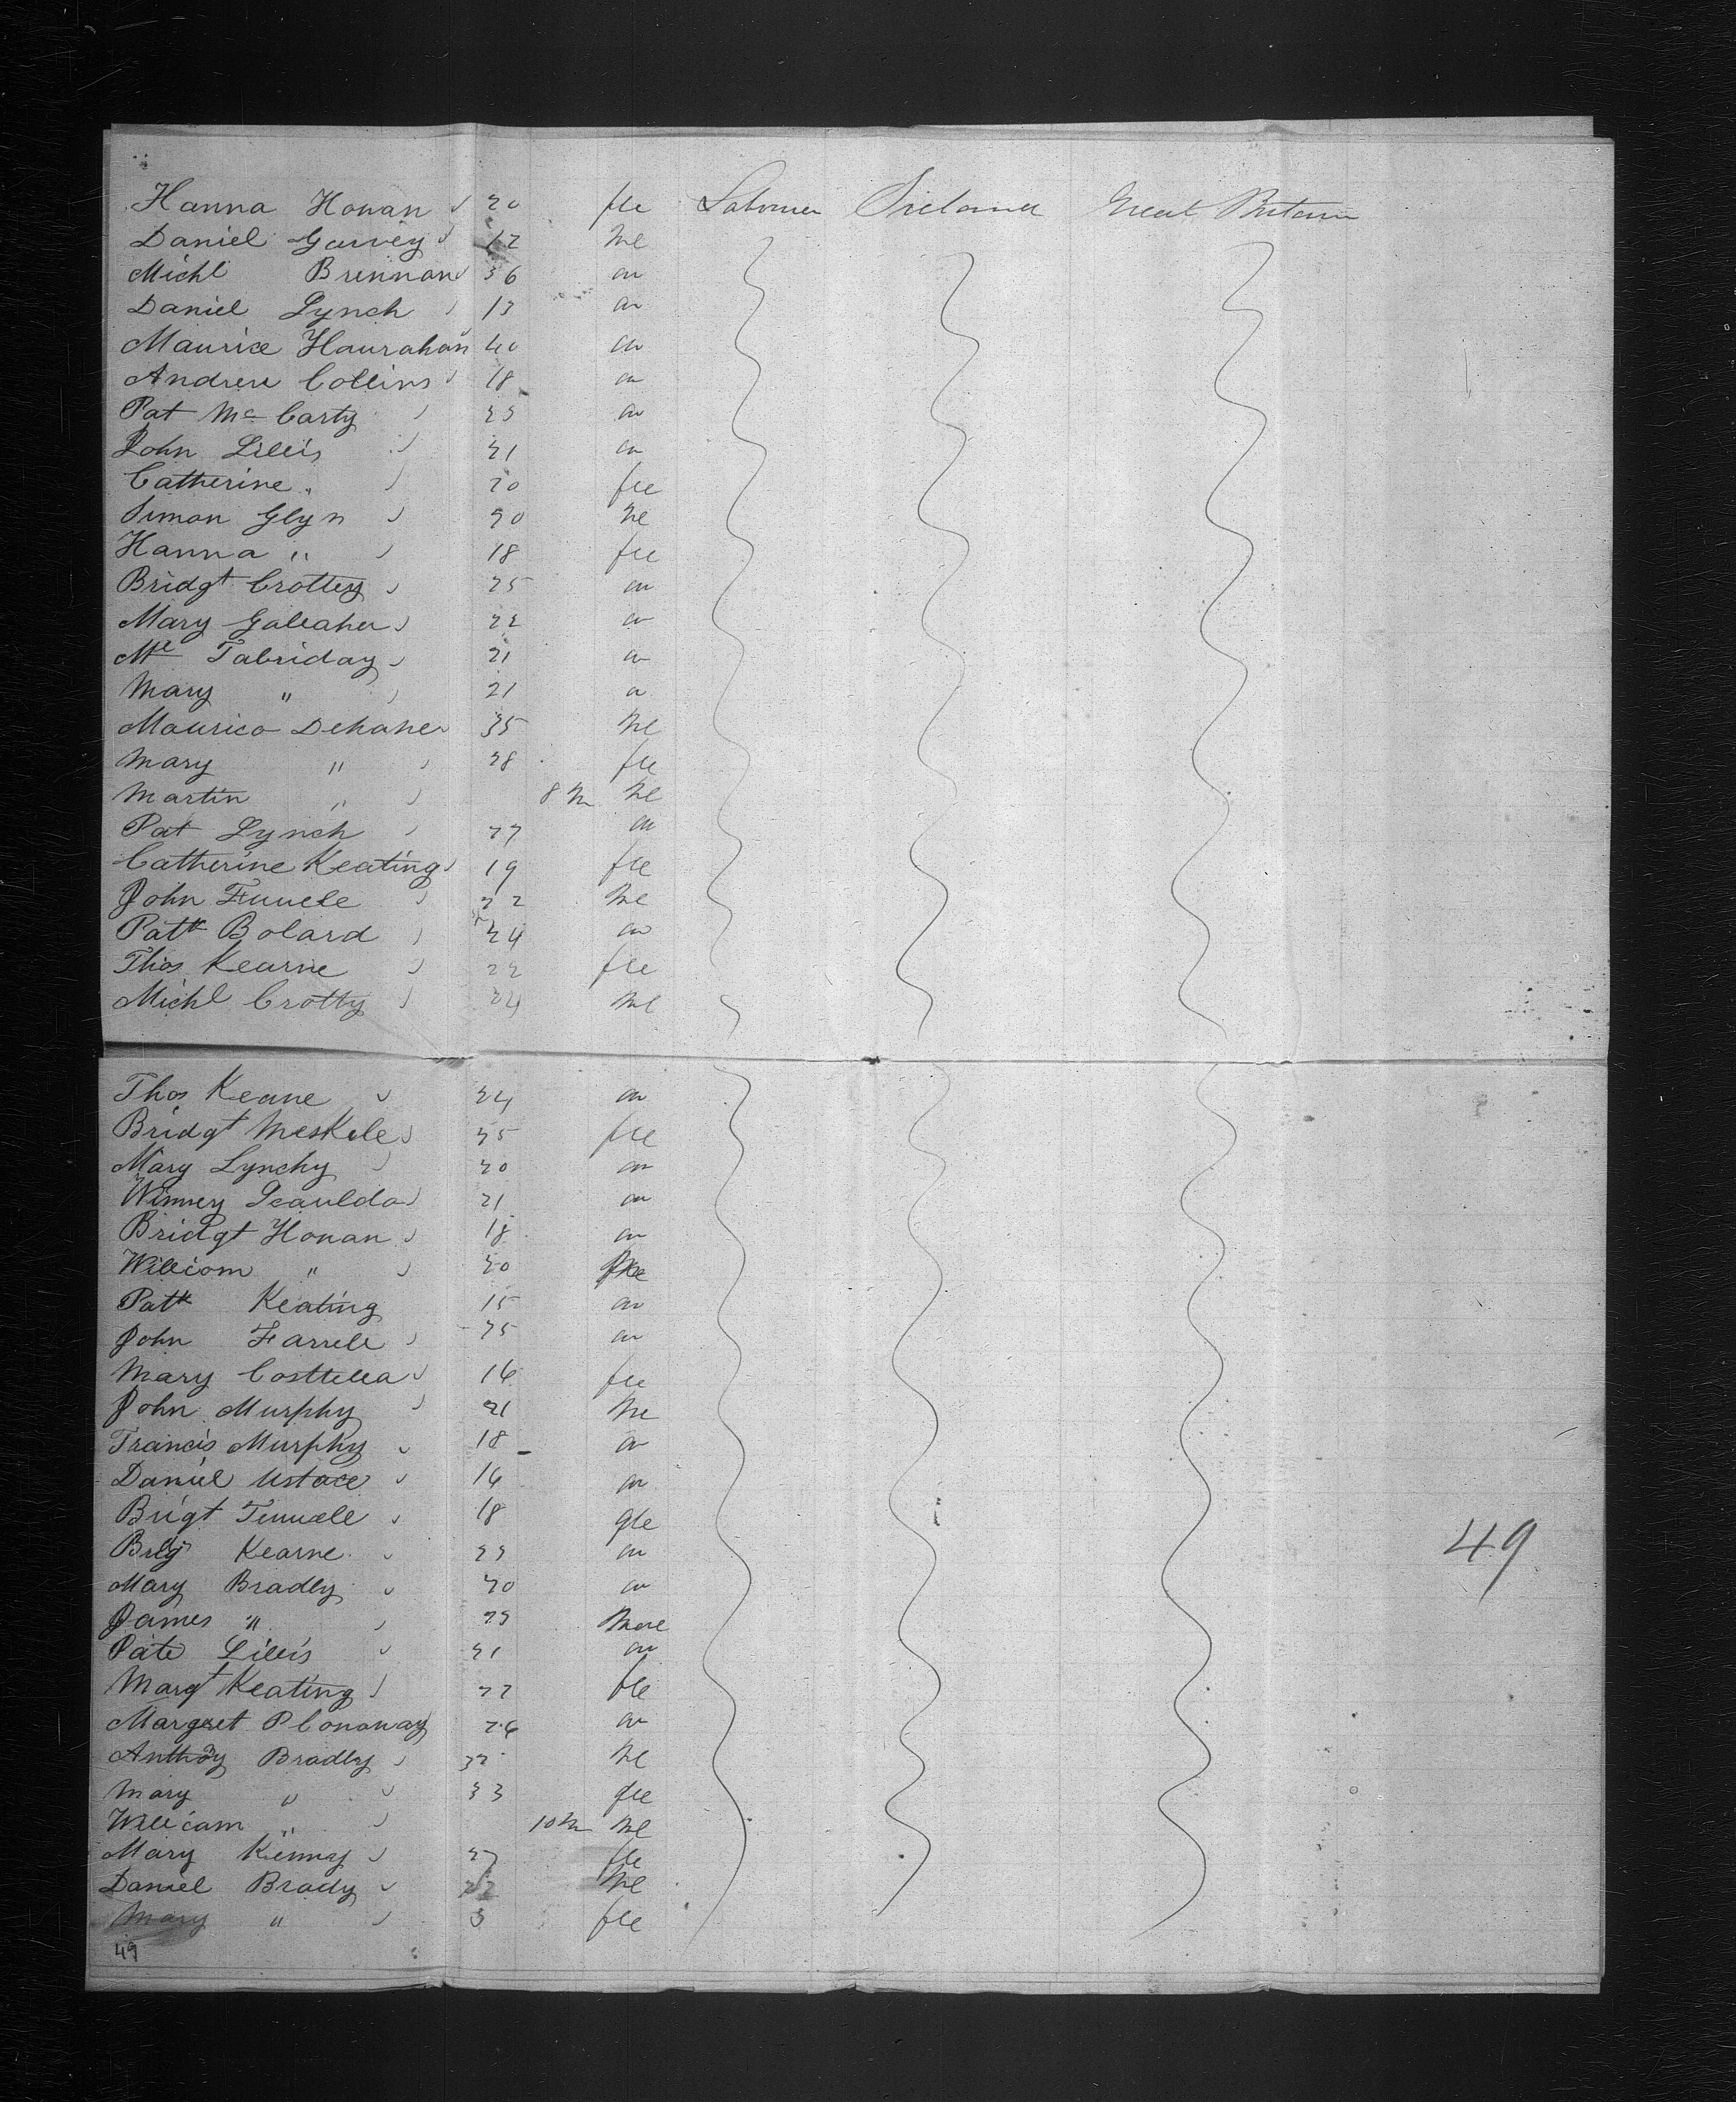 Hanna Honan 20 fle Labourer Ireland Great Britain
Daniel Garvey 12 Ml
Michl Brennan 36 "
Daniel Lynch 13 "
Maurice Hourahan 40 "
Andrew Collins 18 "
Pat Mc Carty 23 "
John Lillis 21 "
Catherine " 20 fle
Simon Glyn 20 Ml
Hanna " 18 fle
Bridgt Crottey 25 "
Mary Galeaher 22 "
Mte Tabriday 21 "
Mary " 21 "
Maurice Dehane 35 Ml
Mary " 28 fle
Martin " 8 M Ml
Pat Lynch 27 "
Catherine Keating 19 fle
John 22 Ml
Patk Bolard 24 "
Thos Kearne 22 fle
Michl Crotty 24 Ml
Thos Keane 24 "
Bridgt Meskele 25 fle
Mary Lynchy 20 "
Winney 21 "
Bridgt Honan 18 "
William " 20
Patk Keating 15 "
John Farrele 25 "
Mary Costtelea 16 fle
John Murphy 21 Ml
Francis Murphy 18 "
Daniel Ustace 16 "
Brigt 18 fle
Kearne 23 "
Mary Bradly 20 "
James " 23 Male
Pate Lillis 21 "
Margt Keating 22 fle
Margret P Conoway 26 "
Anthoy Bradly 32 Ml
Mary " 33 fle
William " 10 M Ml
Mary Kenney 27 fle
Daniel Brady 22 Ml
Mary " 3 fle
49
49